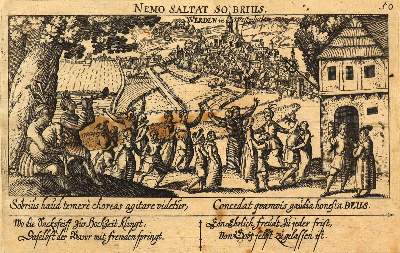 NEMO SALTAT SOBRIUS.
WERDEN in
Sobrius haud temerè choreas agitare videtur,
Concedat quamvis gaudia honesta DEUS.
Wo die Sackpfeiff zur Hochzeit klingt,
Daselbst der Bawr mit freuden springt.
Ein Ehrlich freüdt zu jeder frist,
Von Gott selbst zugelassen ist.